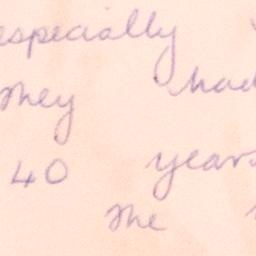 especially
They had
40 years
The